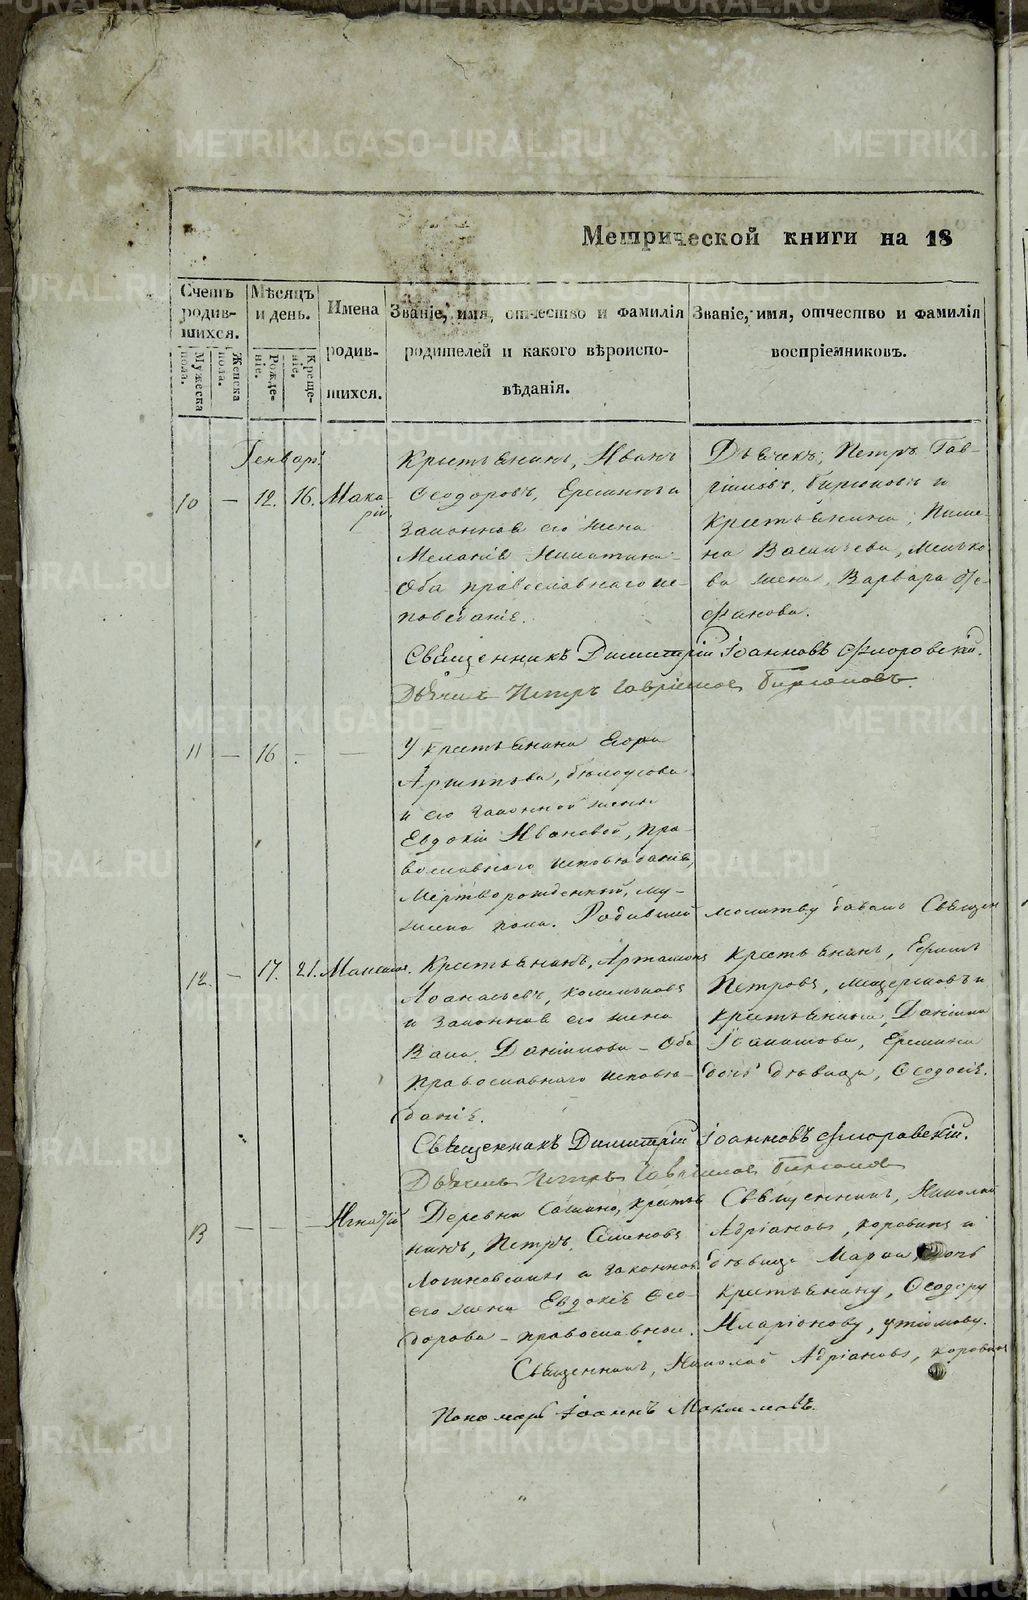 Метрической книги на 18
Счетъ родившихся.
Мужеска пола.
Женска пола.
Мѣсяцъ и день.
Рожденіе.
Крещеніе.
Имена родившихся.
Званіе, имя, отчество и фамилія родителей и какого вѣроисповѣданія.
Званіе, имя, отчество и фамилія воспріемниковъ.
Генварь
10 — 12. 16. Макарій
Крестьянинъ, Иванъ
Ѳеодоровъ, Еремина и
Законная его жена
Меланія Никитина
Оба православнаго ис-
повѣданіе.
Дьячекъ, Петръ Гав-
риловъ, Бирюковъ и
Крестьянина, Пиме-
на Васильева,
ва жена, Варвара Сте-
фанова.
Священникъ Димитрій Іоанновъ Флоровскій.
Дьячекъ Петръ Гавриловъ Бирюковъ
11 — 16 — —
У крестьянина Егора
Архипова, бѣлоусова
и его законной жены
Евдокіи Ивановой, пра-
вославного исповѣданія,
Мертворожденный, му-
жеска пола. Родившей молитву давалъ Священ
12. — 17. 21.
Крестьянинъ, Артамонъ
и Законная его жена
Даніилова — Оба
православнаго исповѣ-
даніе.
крестьянинъ, Ефимъ
Петровъ, мещеряковъ и
крестьянина, Даніила
Еремина
дочь дѣвица, Ѳеодосія.
Священникъ Димитрій Іоанновъ Флоровскій.
Дьячекъ Петръ Гавриловъ Бирюковъ
13 — — — Игнатій
Деревни крестья
нинъ, Петръ Семеновъ
и законная
его жена Евдокія Ѳео-
дорова — православные.
Священникъ, Николай
Адріановъ, коровинъ и
дѣвица Марія, дочь
крестьянину, Ѳеодору
Иларіонову, устюмову.
Священникъ, Николай Адріановъ, коровинъ
Пономарь Іоаннъ Максимовъ.
METRIKI.GASO-URAL.RU